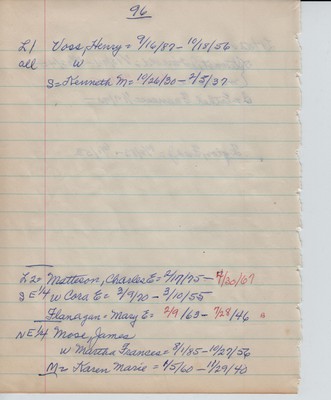 96
L1 Voss, Henry = 9/16/87 - 10/18/56
all W
S = Kenneth M = 10/26/30 - 2/5/37
L2 = Matteson, Charles E = 2/17/75 - 4/20/67
S E 1/4 W Cora E = 3/9/20 - 3/10/55
Flanagan = Mary E = 2/9/63 - 7/28/46 "
NE 1/4 Mose, James
W Martha Frances = 8/1/85 - 10/27/56
M = Karen Marie = 4/5/60 - 1/29/40